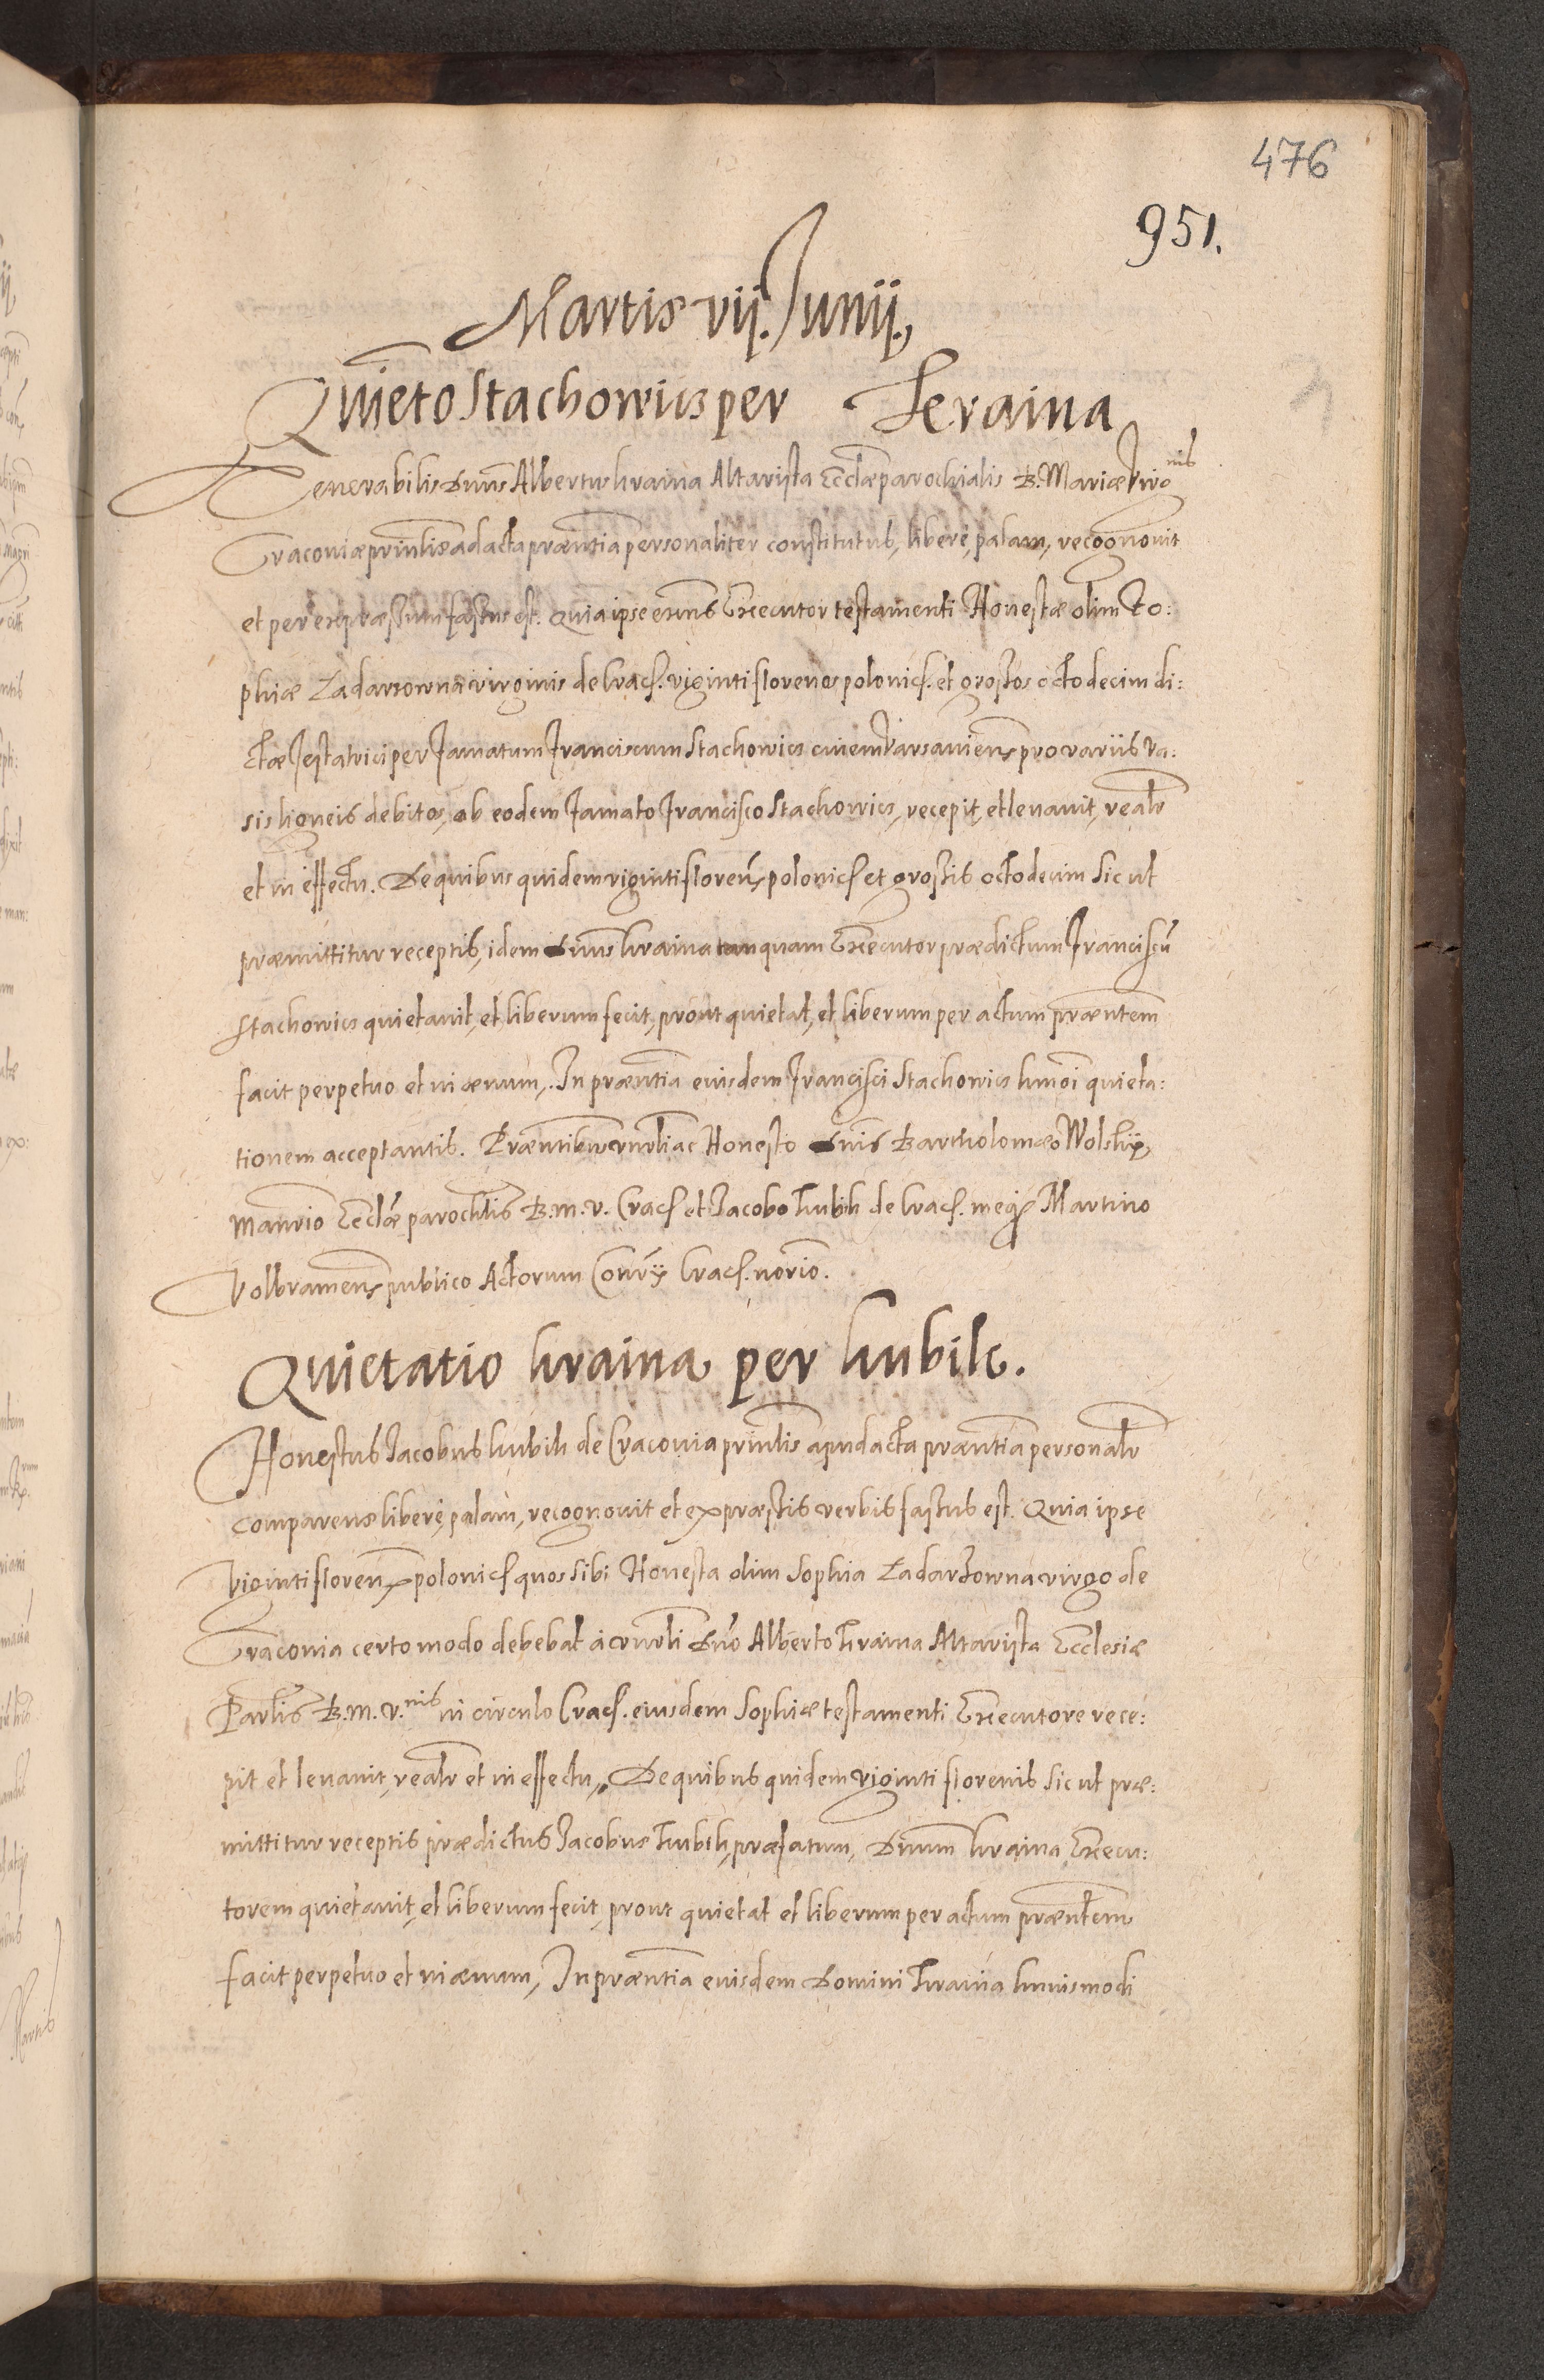 476
951.
Martis vij. Junij.
Quieto Stachowicz per Kraina
Venerabilis Dnus Albertus Kraina Altarista Eccliæ parochialis B. Mariæ Virgnis
Cracoviæ prinlis ad acta præntia personaliter constitutus, liberè, palam, recognovit
et per expræssum fassus est. Quia ipse eruns Executor testamenti Honestæ olim So:
phiæ Zadarzowna virginis de Crac. viginti florenos polonic. et grossos octodecim di:
ctæ Testatrici per Famatum Franciscum Stachowicz civem Varsaviens pro variis va:
sis ligneis debitos, ab eodem Famato Francisco Stachowicz, recepit, et levavit, realr
et in effectu. De quibus quidem viginti florens polonic et grossis octodecim sic ut
præmittitur receptis, idem Dnus Kraina tanquam Executor prædictum Franciscū
Stachowicz quietavit, et liberum fecit, prout quietat, et liberum per actum præntem
facit perpetuo et in ævum. In præntia eiusdem Francisci Stachowicz hmoi quieta:
tionem acceptantis. Præntibus vnrbli ac Honesto Dnis Bartholomæo Wolski,
manrio Eccliæ parochlis B. M. V. Crac et Jacobo Kubik de Crac. meq Martino
Volbramens publico Actorum Conrÿ Crac. norio.
Quietatio Kraina per Kubik.
Honestus Jacobus Kubik de Cracovia prinlis apud acta præntia personalr
comparens liberè, palam, recognovit et expræssis verbis fassus est. Quia ipse
viginti floren polonic quos sibi Honesta olim Sophia Zadarzowna virgo de
Cracovia certo modo debebat à vnrbli Dno Alberto Kraina Altarista Ecclesiæ
Parlis B. M. V.nis in circulo Crac. eiusdem Sophiæ testamenti Executore rece:
pit et levavit, realr et in effectu, De quibus quidem viginti florenis sic ut præ:
mittitur receptis prædictus Jacobus Kubik, præfatum, Dnum Kraina Execu:
torem quietavit, et liberum fecit, prout quietat et liberum per actum præntem
facit perpetuo et in ævum, In præntia eiusdem Domini Kraina huiusmodi